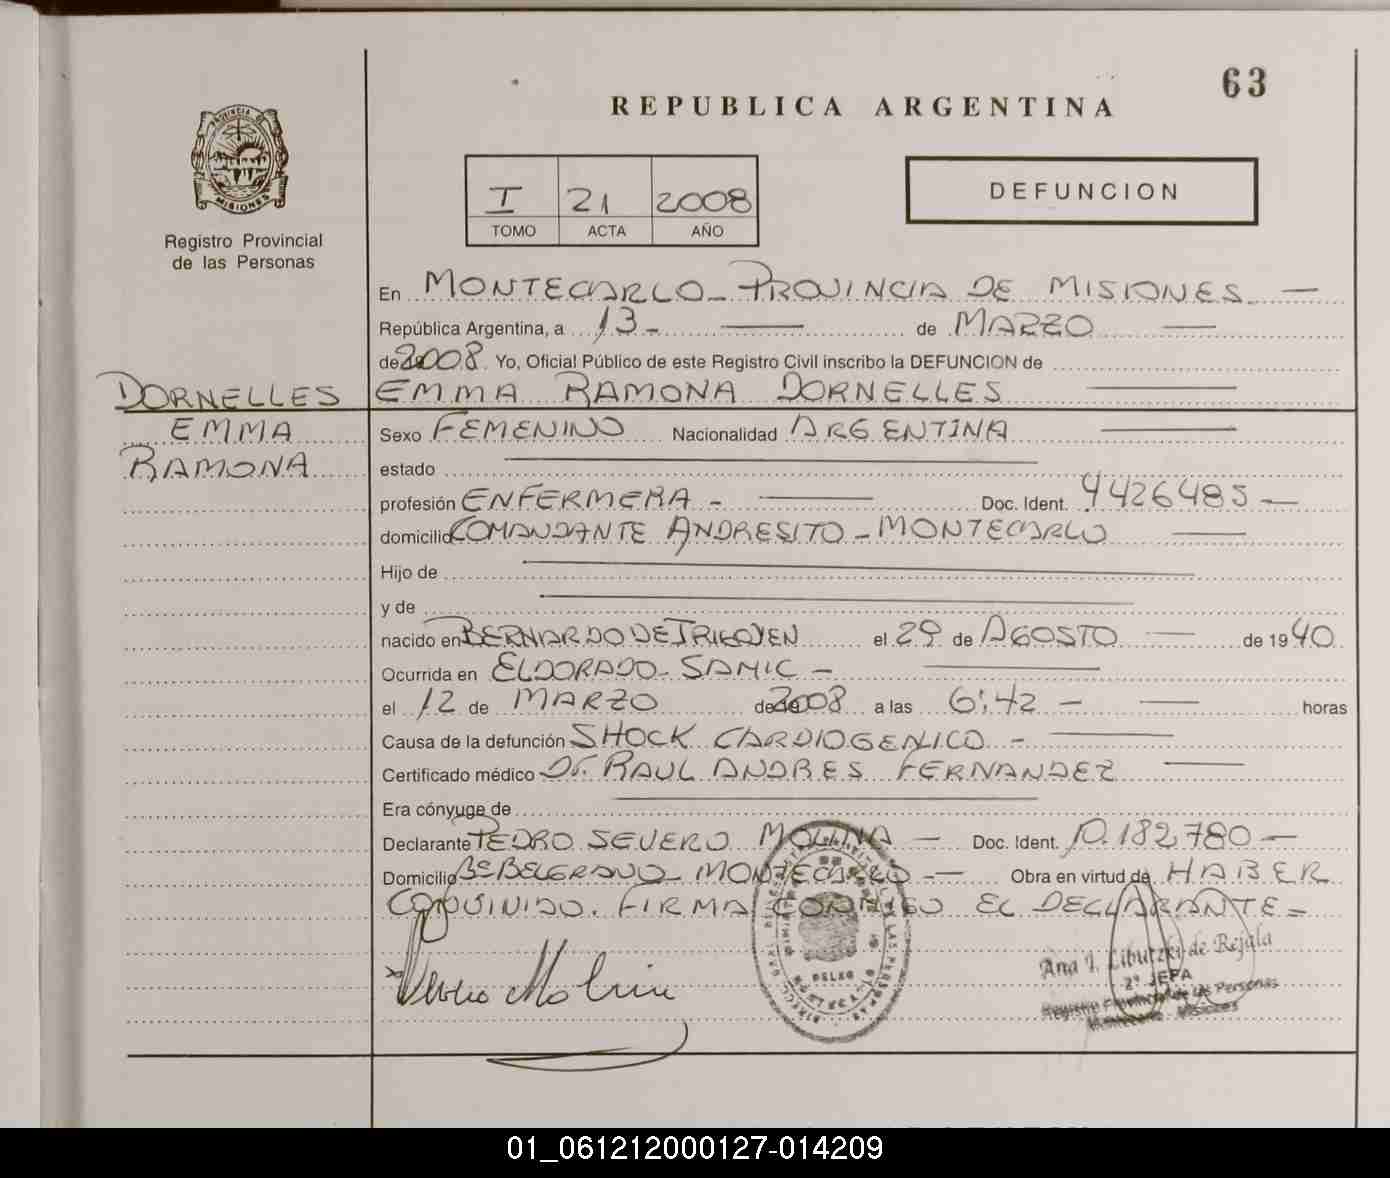 63
REPUBLICA ARGENTINA
PROVINCIA DE
MISIONES
Registro Provincial
de las Personas
I 21 2008
TOMO ACTA AÑO
DEFUNCION
En MONTECARLO - PROVINCIA DE MISIONES -
República Argentina, a 13 - de MARZO
de 2008 Yo, Oficial Público de este Registro Civil inscribo la DEFUNCION de
DORNELLES
EMMA
RAMONA
EMMA RAMONA DORNELLES
Sexo FEMENINO Nacionalidad ARGENTINA
estado
profesión ENFERMERA - Doc. Ident. 4426485 -
domicilio COMANDANTE ANDRESITO - MONTECARLO
Hijo de
y de
nacido en BERNARDO DE IRIGOYEN el 29 de AGOSTO de 1940
Ocurrida en ELDORADO - SAMIC -
el 12 de MARZO de 2008 a las 6:42 - horas
Causa de la defunción SHOCK CARDIOGENICO -
Certificado médico Dr. RAUL ANDRES FERNANDEZ
Era cónyuge de
Declarante PEDRO SEVERO MOLINA - Doc. Ident. 10.182.780 -
Domicilio Bº BELGRANO - MONTECARLO - Obra en virtud de HABER
COMUNIDO. FIRMA CONMIGO EL DECLARANTE =
Molina
Ana I. Libutzki de Rejala
2º JEFA
Registro Provincial de las Personas
Montecarlo - Misiones
01_061212000127-014209